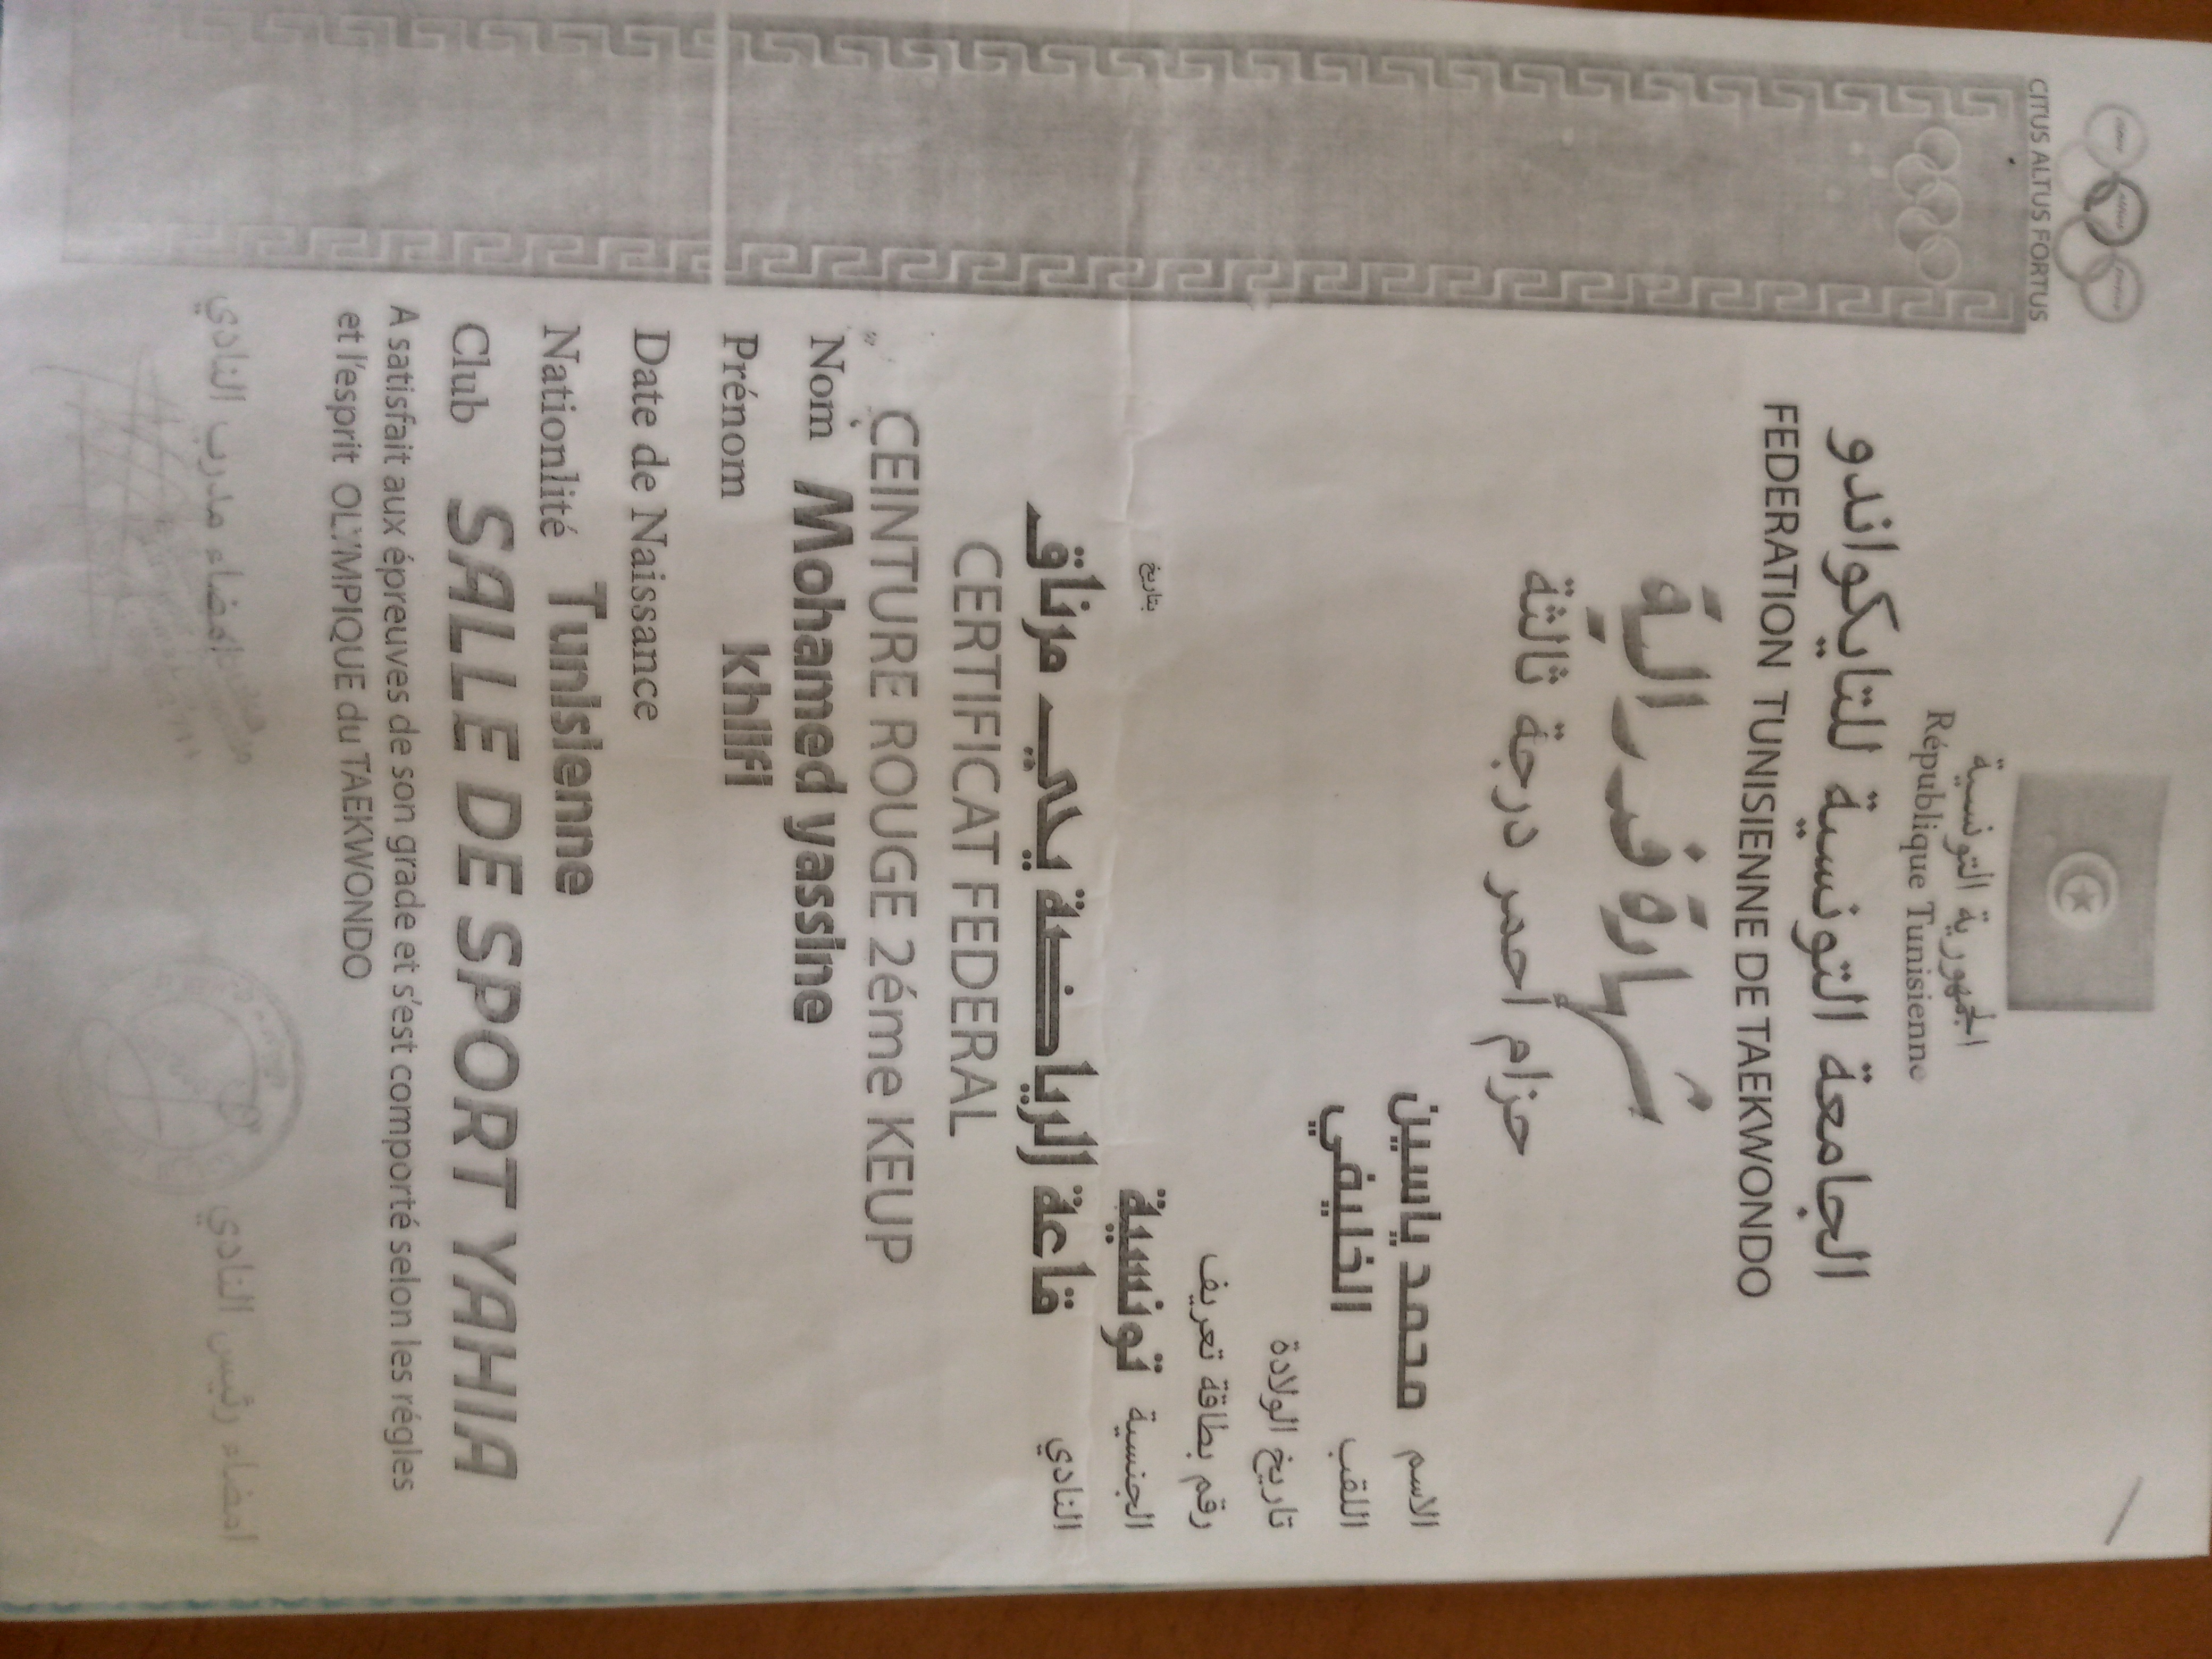 CITUS ALTUS FORTUS
الجمهورية التونسية
République Tunisienne
الجامعة التونسية للتايكواندو
FEDERATION TUNISIENNE DE TAEKWONDO
حزام أحمر درجة ثالثة
الاسم محمد ياسين
اللقب الخليفي
تاريخ الولادة
رقم بطاقة تعريف
بتاريخ
الجنسية تونسية
النادي قاعة الرياضة يحي مرناق
CERTIFICAT FEDERAL
CEINTURE ROUGE 2éme KEUP
Nom Mohamed yassine
Prénom khlifi
Date de Naissance
Nationlité Tunisienne
Club SALLE DE SPORT YAHIA
A satisfait aux épreuves de son grade et s'est comporté selon les régles
et l'esprit OLYMPIQUE du TAEKWONDO
امضاء رئيس النادي
امضاء مدرب النادي